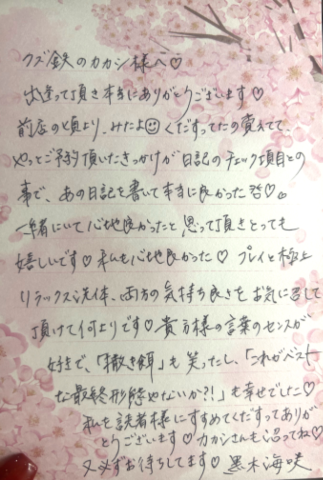 クズ鉄のカカシ様へ♡
出逢って頂き本当にありがとうございます♡
前店の頃より、みたよ☺くだすってたの覚えてて、
やっとご予約頂いたきっかけが日記のチェック項目との
事で、あの日記を書いて本当に良かった哲♡。
一緒にいて心地良かったと思って頂きとっても
嬉しいです♡私も心地良かった♡プレイと極上
リラックス洗体、両方の気持ち良さをお気に召して
頂けて何よりです♡貴方様の言葉のセンスが
好きで、「撒き餌」も笑ったし、「これがベスト
な最終形態やないか?!」も幸せでした♡
私を読者様にすすめてくだすってありが
とうございます♡カカシさんも沼ってね♡
又必ずお待ちしてます♡黒木海咲